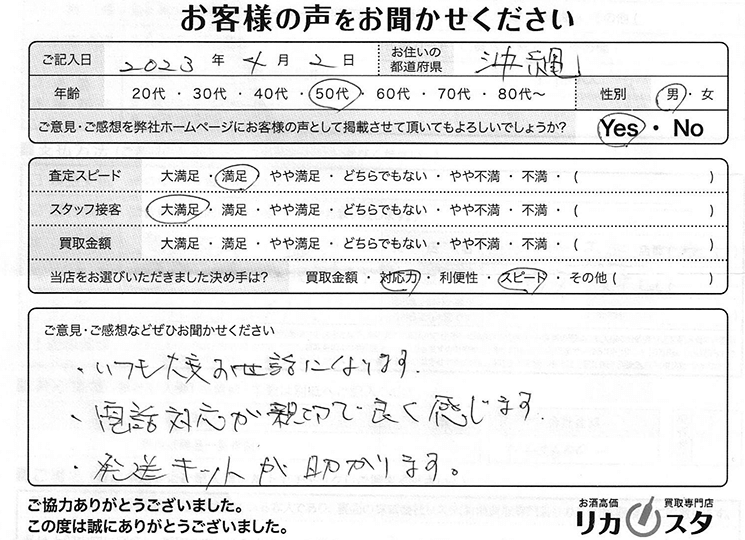 お客様の声をお聞かせください
ご記入日 2023 年 4 月 2 日 お住いの都道府県 沖縄
年齢 20代 ・ 30代 ・ 40代 ・ 50代 ・ 60代 ・ 70代 ・ 80代〜 性別 男 ・ 女
ご意見・ご感想を弊社ホームページにお客様の声として掲載させて頂いてもよろしいでしょうか? Yes ・ No
査定スピード 大満足 ・ 満足 ・ やや満足 ・ どちらでもない ・ やや不満 ・ 不満 ・ ( )
スタッフ接客 大満足 ・ 満足 ・ やや満足 ・ どちらでもない ・ やや不満 ・ 不満 ・ ( )
買取金額 大満足 ・ 満足 ・ やや満足 ・ どちらでもない ・ やや不満 ・ 不満 ・ ( )
当店をお選びいただきました決め手は? 買取金額 ・ 対応力 ・ 利便性 ・ スピード ・ その他 ( )
ご意見・ご感想などぜひお聞かせください
・いつも大変お世話になります.
・電話対応が親切で良く感じます.
・発送キットが助かります。
ご協力ありがとうございました。
この度は誠にありがとうございました。
お酒高価 買取専門店
リカスタ